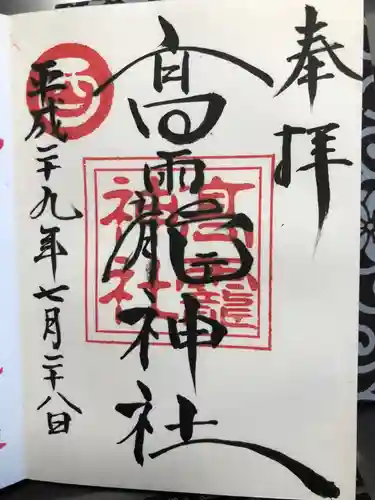 奉拝
高龗神社
平成二十九年七月二十八日
酉
高龗
神社